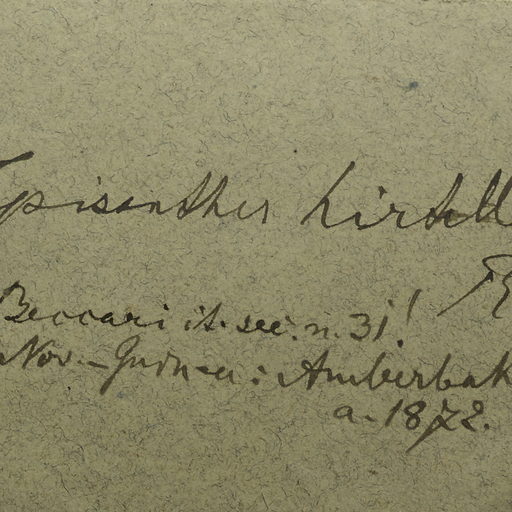 episanthes hirtell
R
Beccari it. sec. n. 31!
Nov.-Guinea: Amberbak
a. 1872.